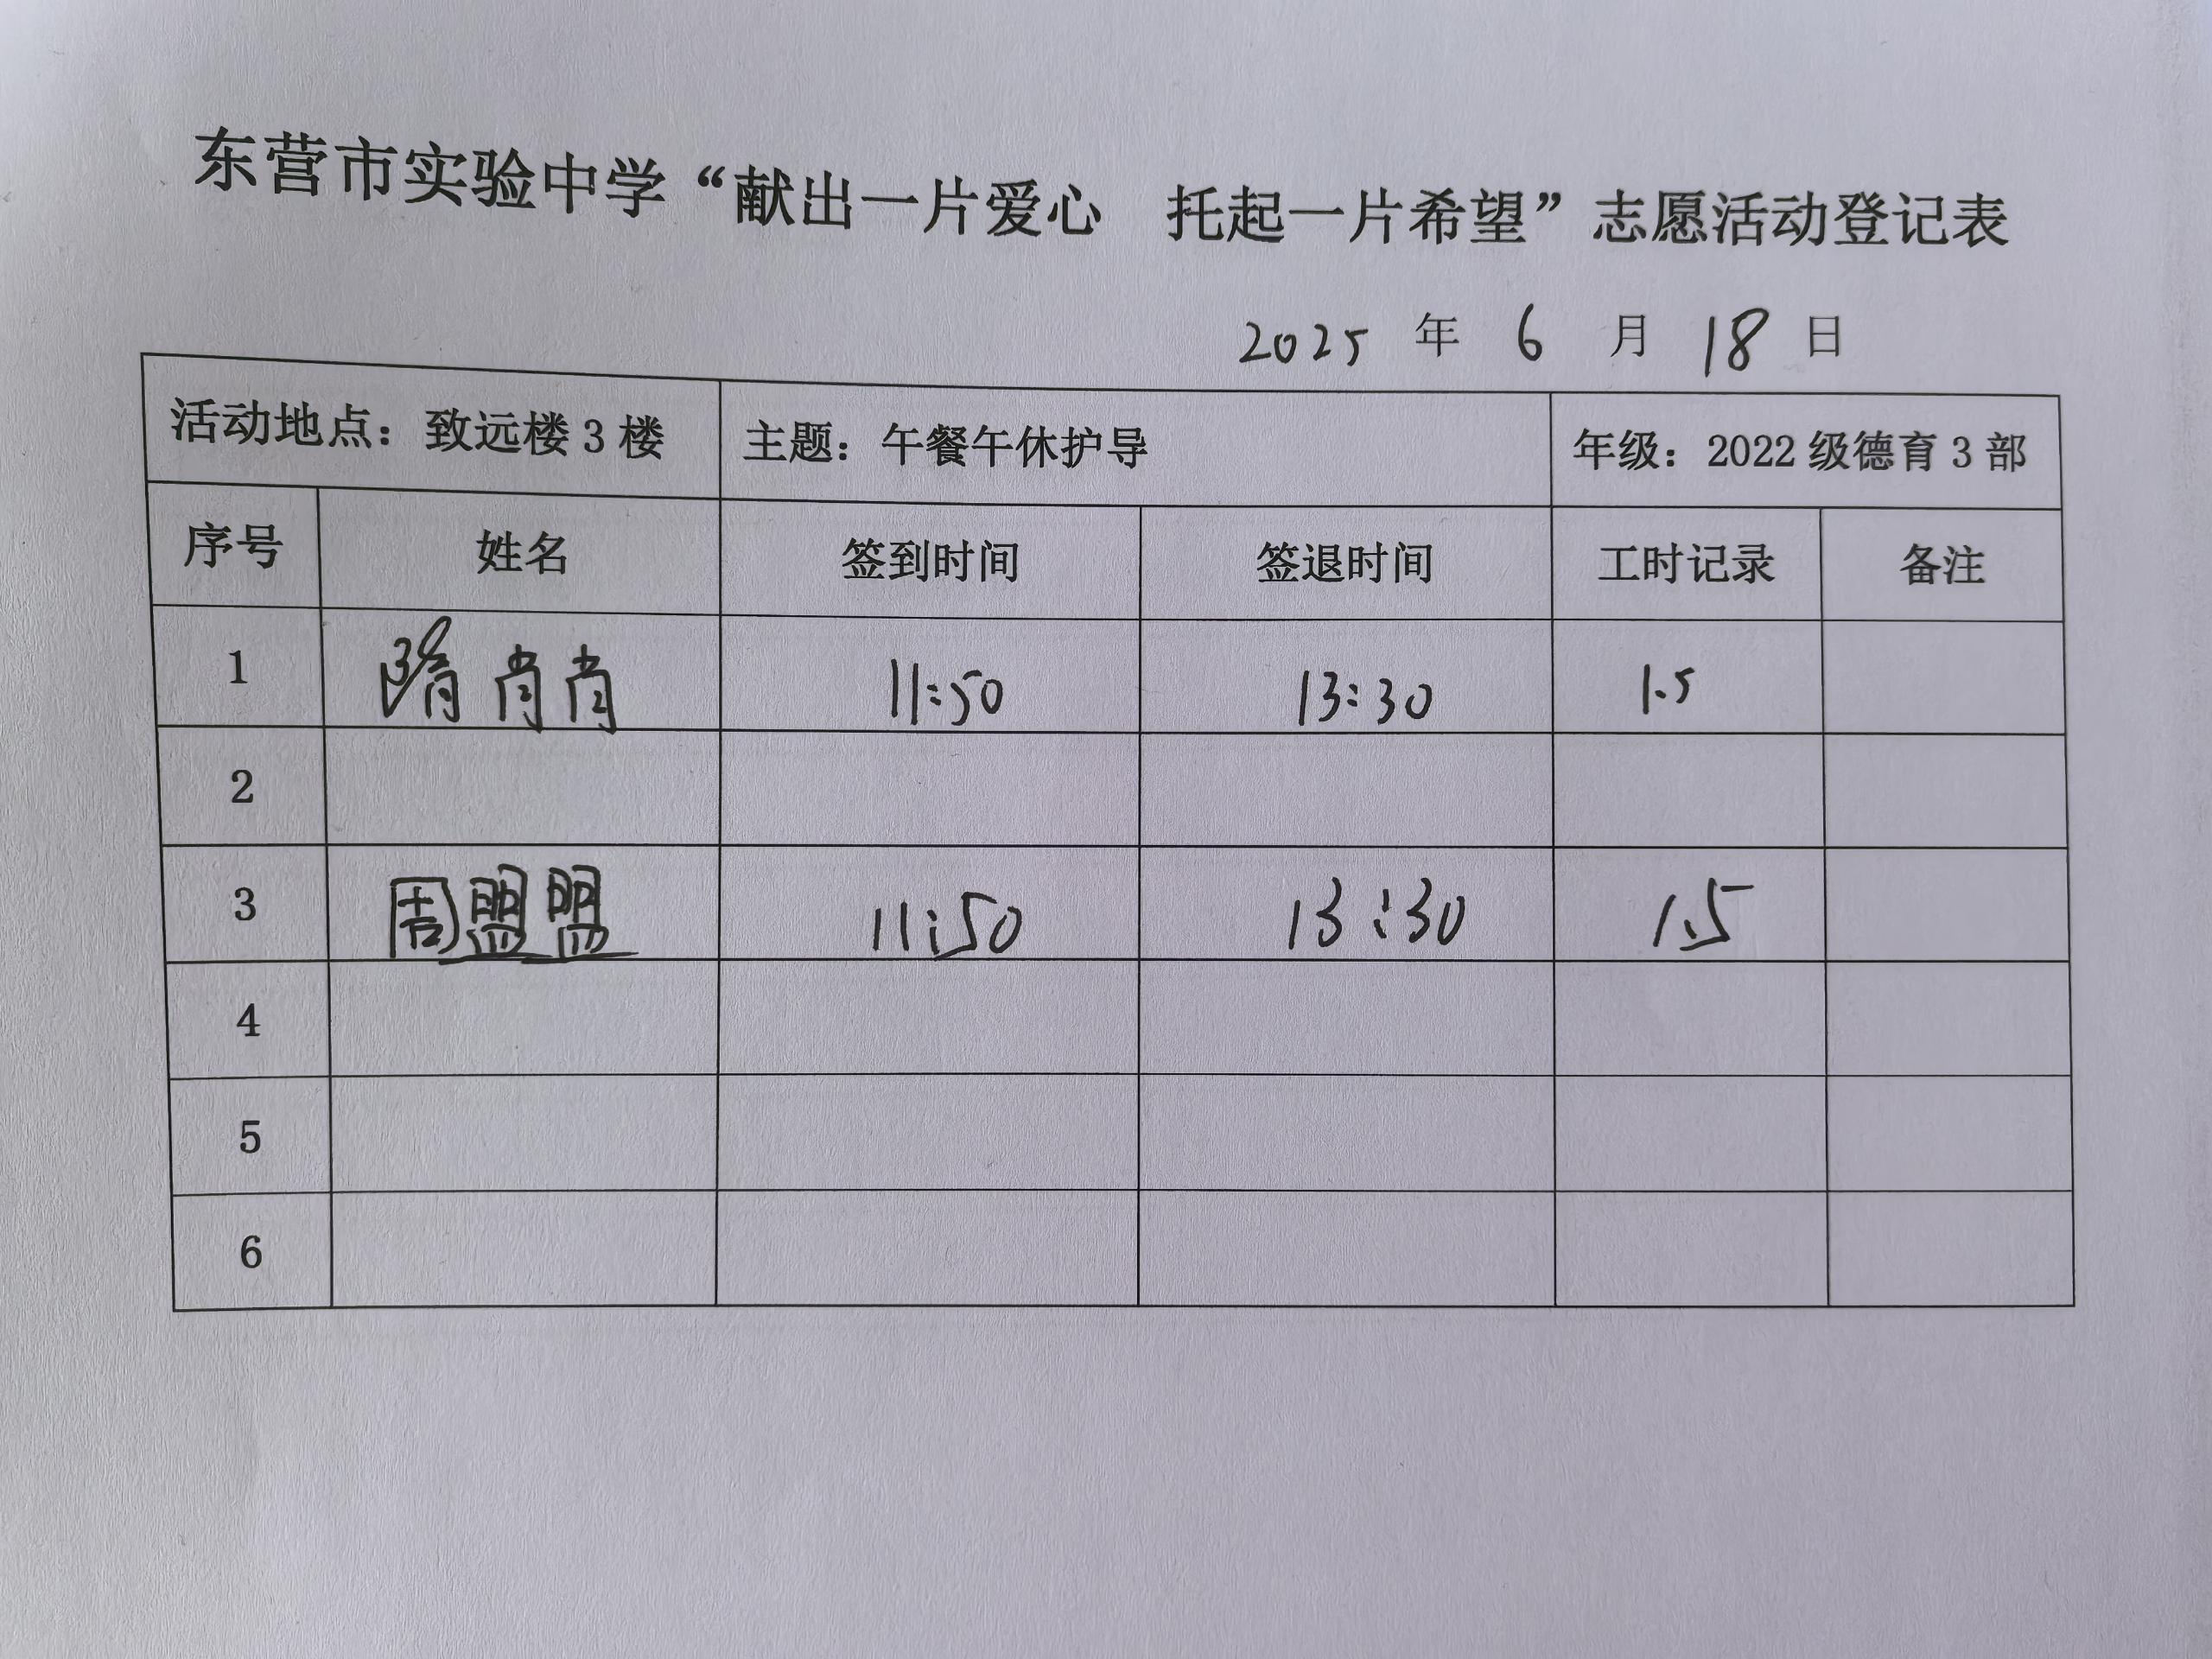 东营市实验中学“献出一片爱心 托起一片希望”志愿活动登记表
2025 年 6 月 18 日
活动地点：致远楼 3 楼 主题：午餐午休护导 年级：2022 级德育 3 部
序号 姓名 签到时间 签退时间 工时记录 备注
1 隋肖肖 11:50 13:30 1.5
2
3 周盟盟 11:50 13:30 1.5
4
5
6